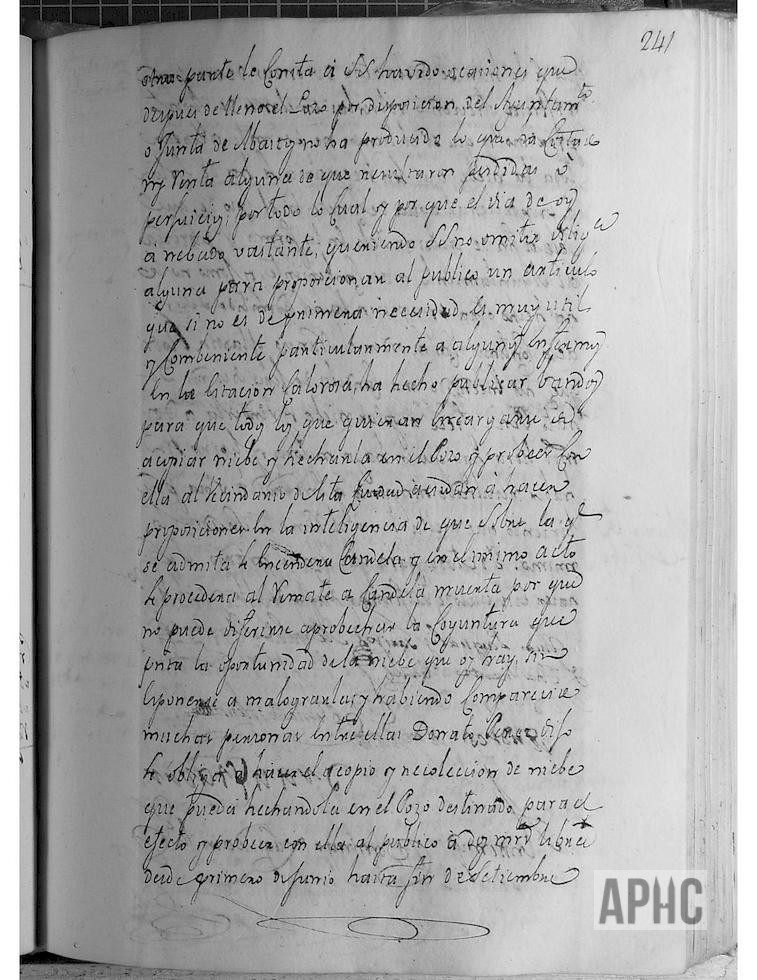 241
otra parte le Consta a SS havido ocasiones que
despues de lleno el Pozo por disposicion del Ayuntamto
o Junta de Abastos no ha producido lo que ha Costado
ni Venta alguna de que resultaron perdidas ò
perjuicios, por todo lo Cual y por que el dia de oy
a nebado vastante, queriendo SS no omitir
alguna para proporcionar al publico un articulo
que si no es de primera necesidad es muy util
y Combeniente particularmente a algunos enfermos
en la Estacion Calorosa, ha hecho publicar vandos
para que todos los que quieran encargarse de
acopiar niebe y hecharla en el Pozo y probeer Con
ella al Vecindario de esta Ciudad acudan à hacer
proposiciones en la inteligencia de que sobre la qe
se admita se encendera Candela y en el mismo acto
se procedera al Remate a Candela muerta por que
no puede diferirse aprobechar la Coyuntura que
presta la oportunidad de la niebe que oy hay, sin
esponerse a malograrla; y habiendo Comparecido
muchas personas entre ellas Donato Perez dijo
se obliga a hacer el acopio y recoleccion de niebe
que pueda hechandola en el Pozo destinado para el
efecto y probeer con ella al publico a mrs libra
desde primero de Junio hasta fin de Setiembre
APHC